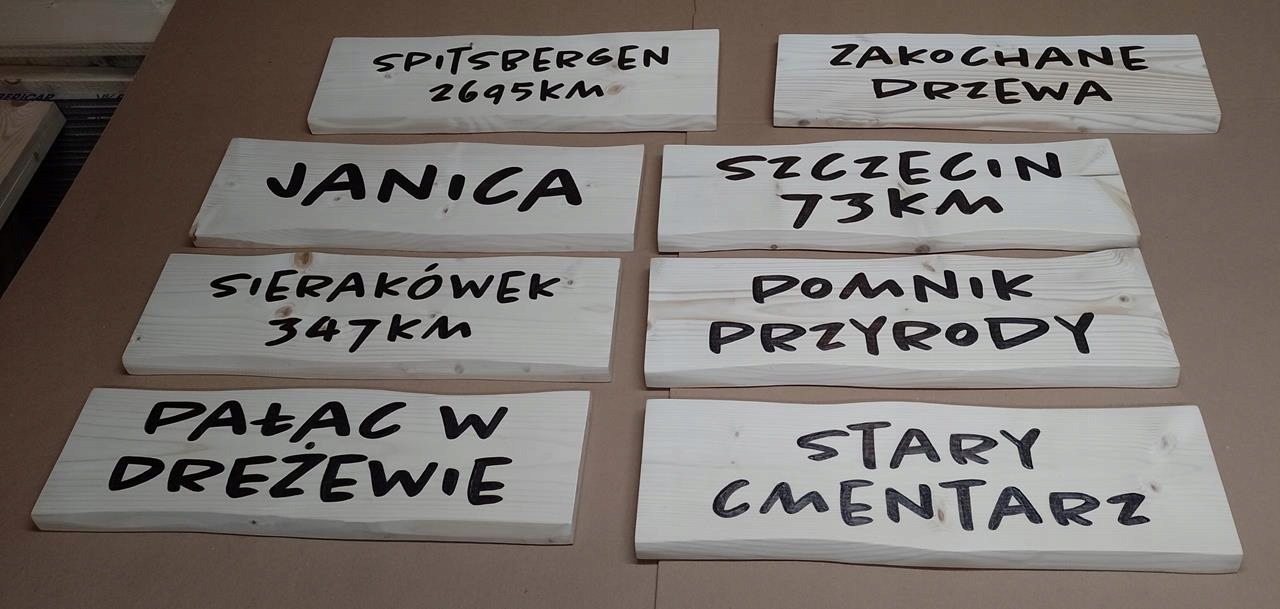 SPITSBERGEN
2695KM
ZAKOCHANE
DRZEWA
JANICA
SZCZECIN
73KM
SIERAKÓWEK
347KM
POMNIK
PRZYRODY
PAŁAC W
DREŻEWIE
STARY
CMENTARZ